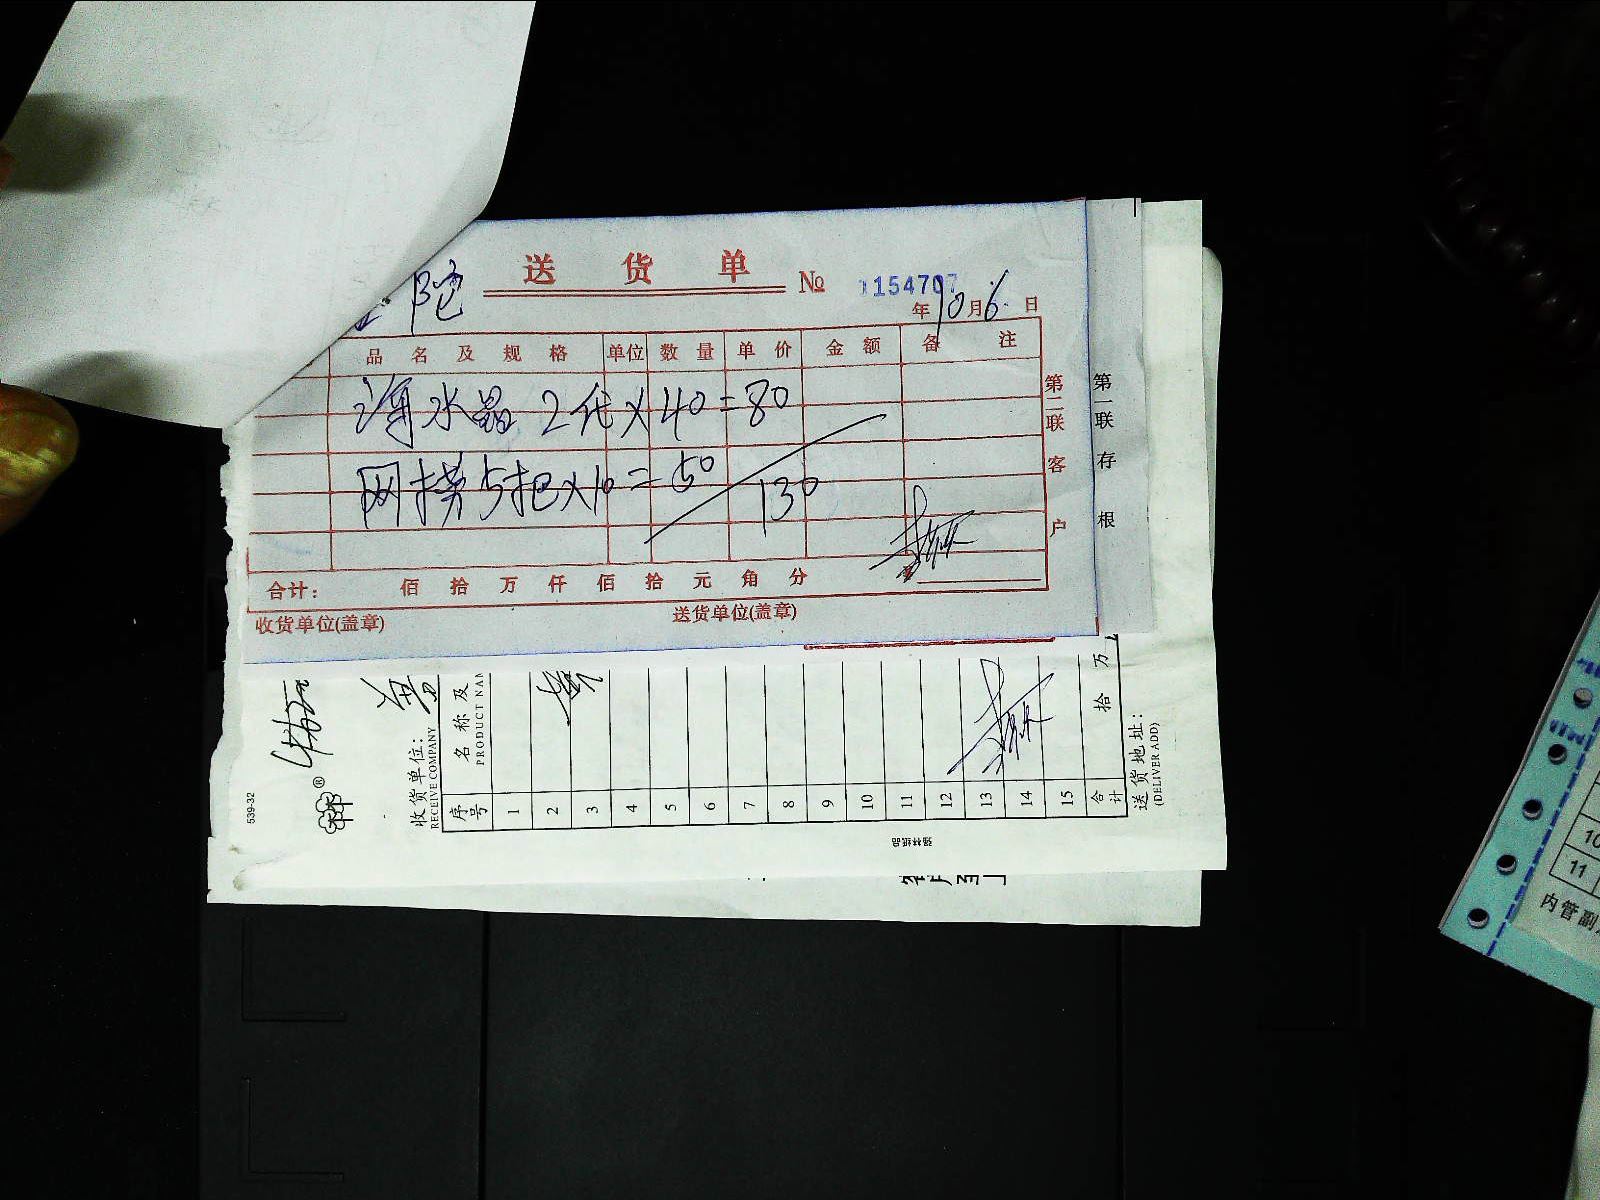 送 货 单 № 154707
陀
年10月6日
品 名 及 规 格 单位 数 量 单 价 金 额 备 注
净水晶 2代×40=80
网捞5把×10=50
130
合计: 佰 拾 万 仟 佰 拾 元 角 分
收货单位(盖章) 送货单位(盖章)
第二联 客户
第一联 存根
539-32
®
收货单位:
RECEIVE COMPANY
序号 名 称 及
PRODUCT NAM
1
2
3
4
5
6
7
8
9
10
11
12
13
14
15
合计 拾 万
送货地址:
(DELIVER ADD)
强林纸品
10
11
内管副